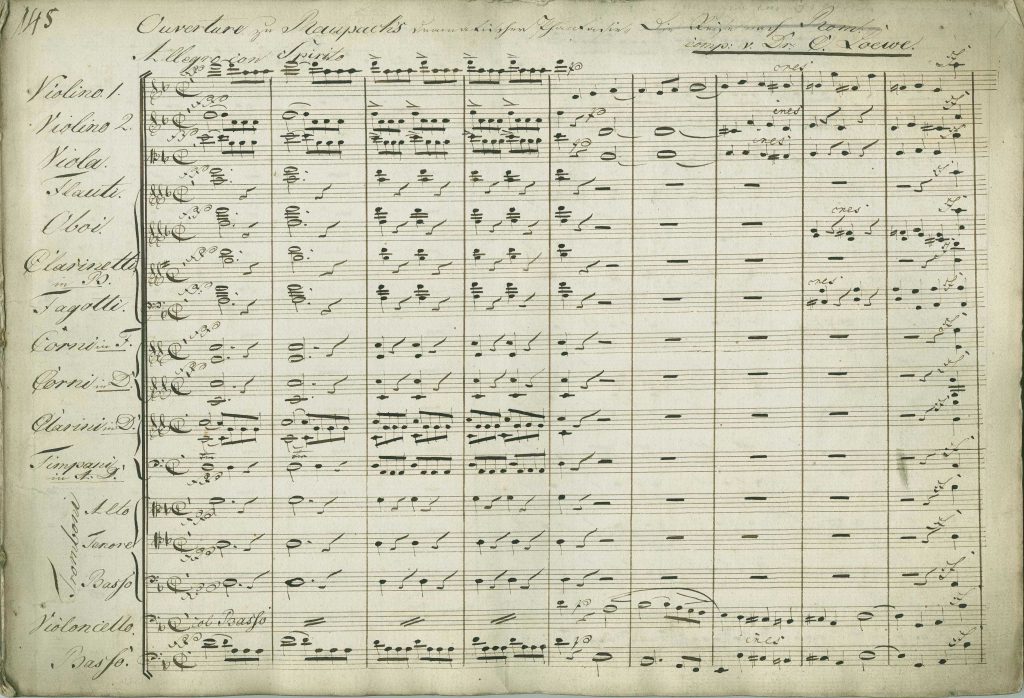 145
Ouverture zu Raupach's dramatischer
comp. v. Dr. C. Loewe.
Allegro con Spirito
Violino 1.
cres
Violino 2.
cres
Viola.
cres
Flauti.
Oboi.
cres
Clarinetto
in B.
Fagotti.
cres
Corni in F.
Corni in D
Clarini in D
Timpani
in A. D.
Trombone
Alto
Tenore
Basso
Violoncello.
Col Basso
Basso.
cres